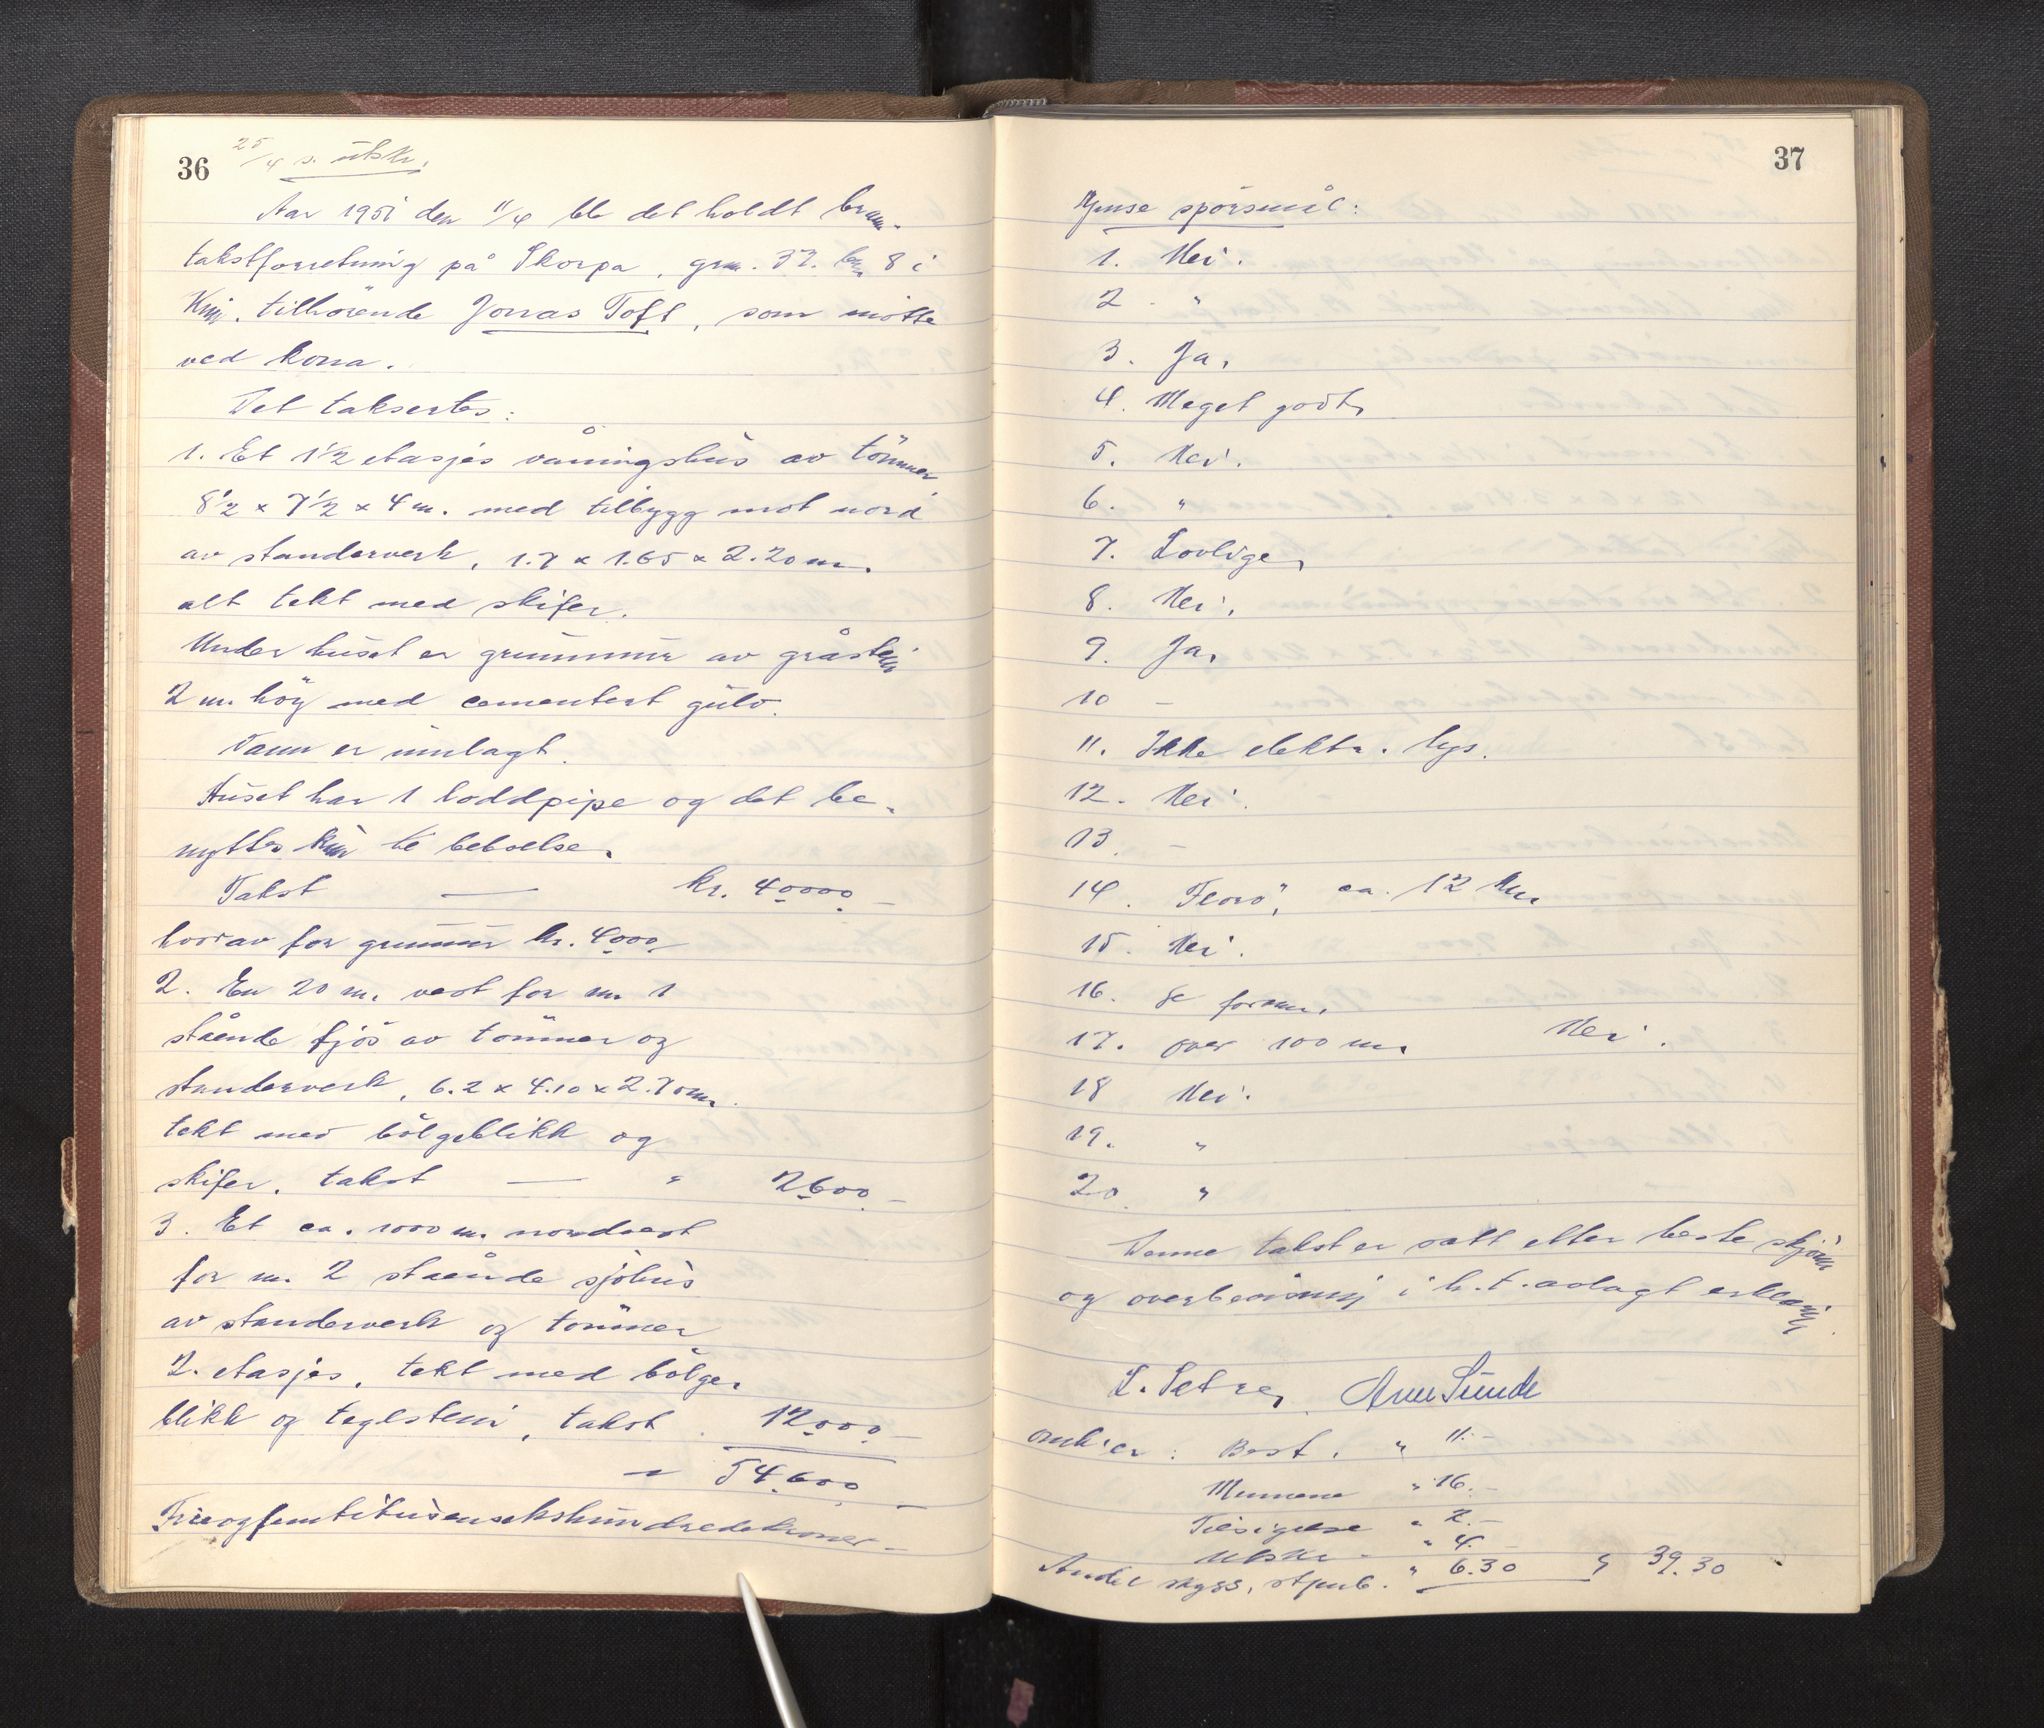 36
25/4 s. utskr.
Aar 1951 den 11/4 ble det holdt brann-
takstforretning på Skorpa, grn. 37. brn 8 i
Kinn, tilhørende Jonas Toft, som møtte
ved kona.
Det taksertes:
1. Et 1 1/2 etasjes våningshus av tömmer
8 1/2 x 7 1/2 x 4 m. med tilbygg mot nord
av standerverk, 1.7 x 1.65 x 2.20 m.
alt tekt med skifer.
Under huset er grunnmur av gråstein
2 m. höy med cementert gulv.
Vann er innlagt.
Huset har 1 loddpipe og det be-
nyttes kun til beboelse.
Takst — kr. 40000 -
hvorav for grunnmur kr. 4000
2. En 20 m. vest for nr. 1
stående fjös av tömmer og
standerverk, 6.2 x 4.10 x 2.70 m.
tekt med bölgeblikk og
skifer. takst — " 2600 -
3. Et ca. 1000 m. nordvest
for nr. 2 stående sjöhus
av standerverk og tömmer
2. etasjes, tekt med bölge-
blikk og teglstein, takst. 12000 -
" 54600 -
Fireogfemtitusensekshundredekroner -
37
Øvrige spörsmål:
1. Nei.
2. "
3. Ja,
4. Meget godt,
5. Nei.
6. "
7. Lovlige,
8. Nei,
9. Ja,
10 -
11. Ikke elektr. lys.
12. Nei.
13. -
14. Florö, ca. 12 km
15. Nei.
16. Se forann.
17. over 100 m. Nei.
18 Nei.
19. "
20 "
Denne takst er satt etter beste skjönn
og overbevisning i h.t. avlagt erklæring.
L. Setre, Arne Sunde
omk.er: Best. " 11.-
Mennene " 16.-
Tilsigelse " 2.-
Utskr. " 4.-
Andel skyss, stpmb. " 6.30 " 39.30